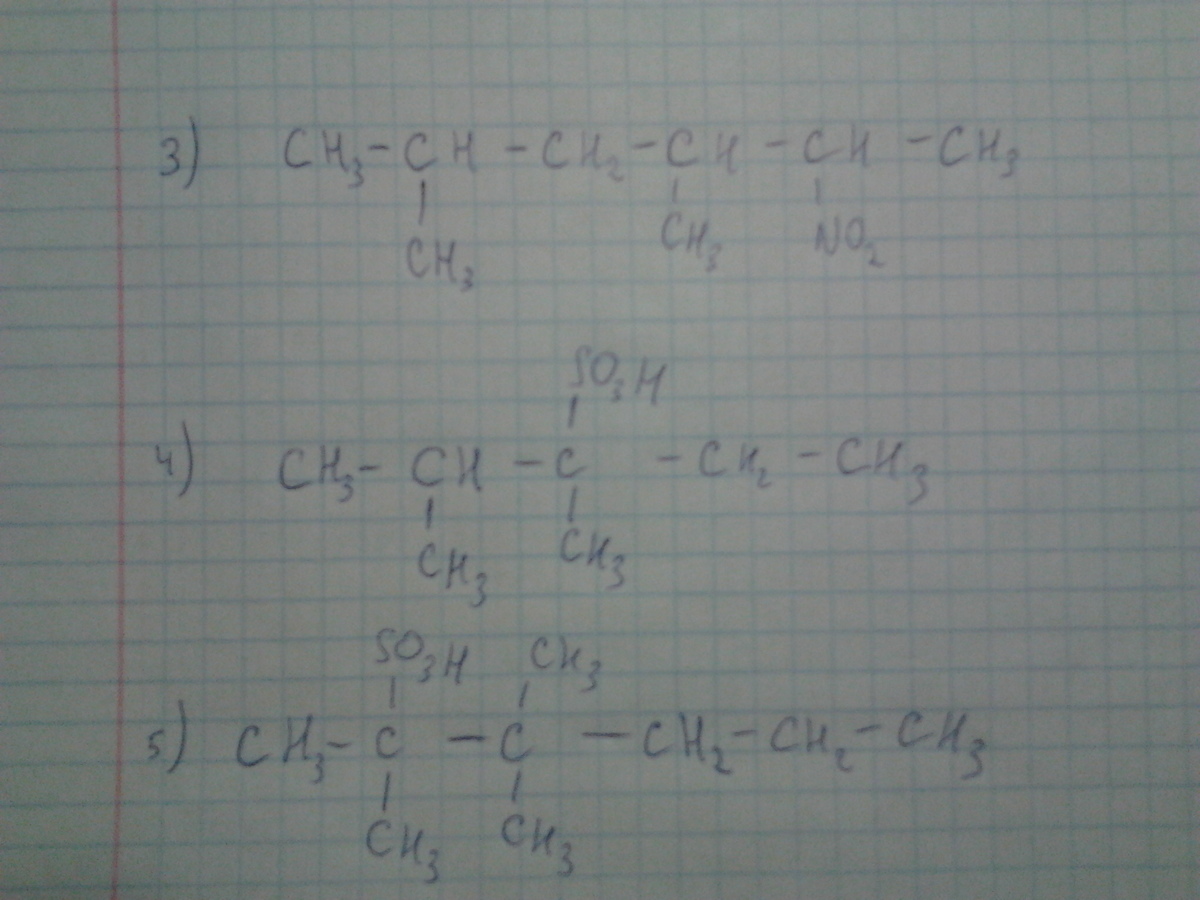 3) CH₃ - CH - CH₂ - CH - CH - CH₃
CH₃ CH₃ NO₂
SO₃H
4) CH₃ - CH - C - CH₂ - CH₃
CH₃ CH₃
SO₃H CH₃
5) CH₃ - C - C - CH₂ - CH₂ - CH₃
CH₃ CH₃